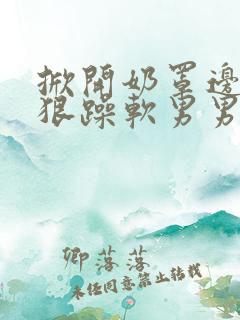 掀開奶罩邊
狠躁軟男男
卿落落
未经同意禁止转载